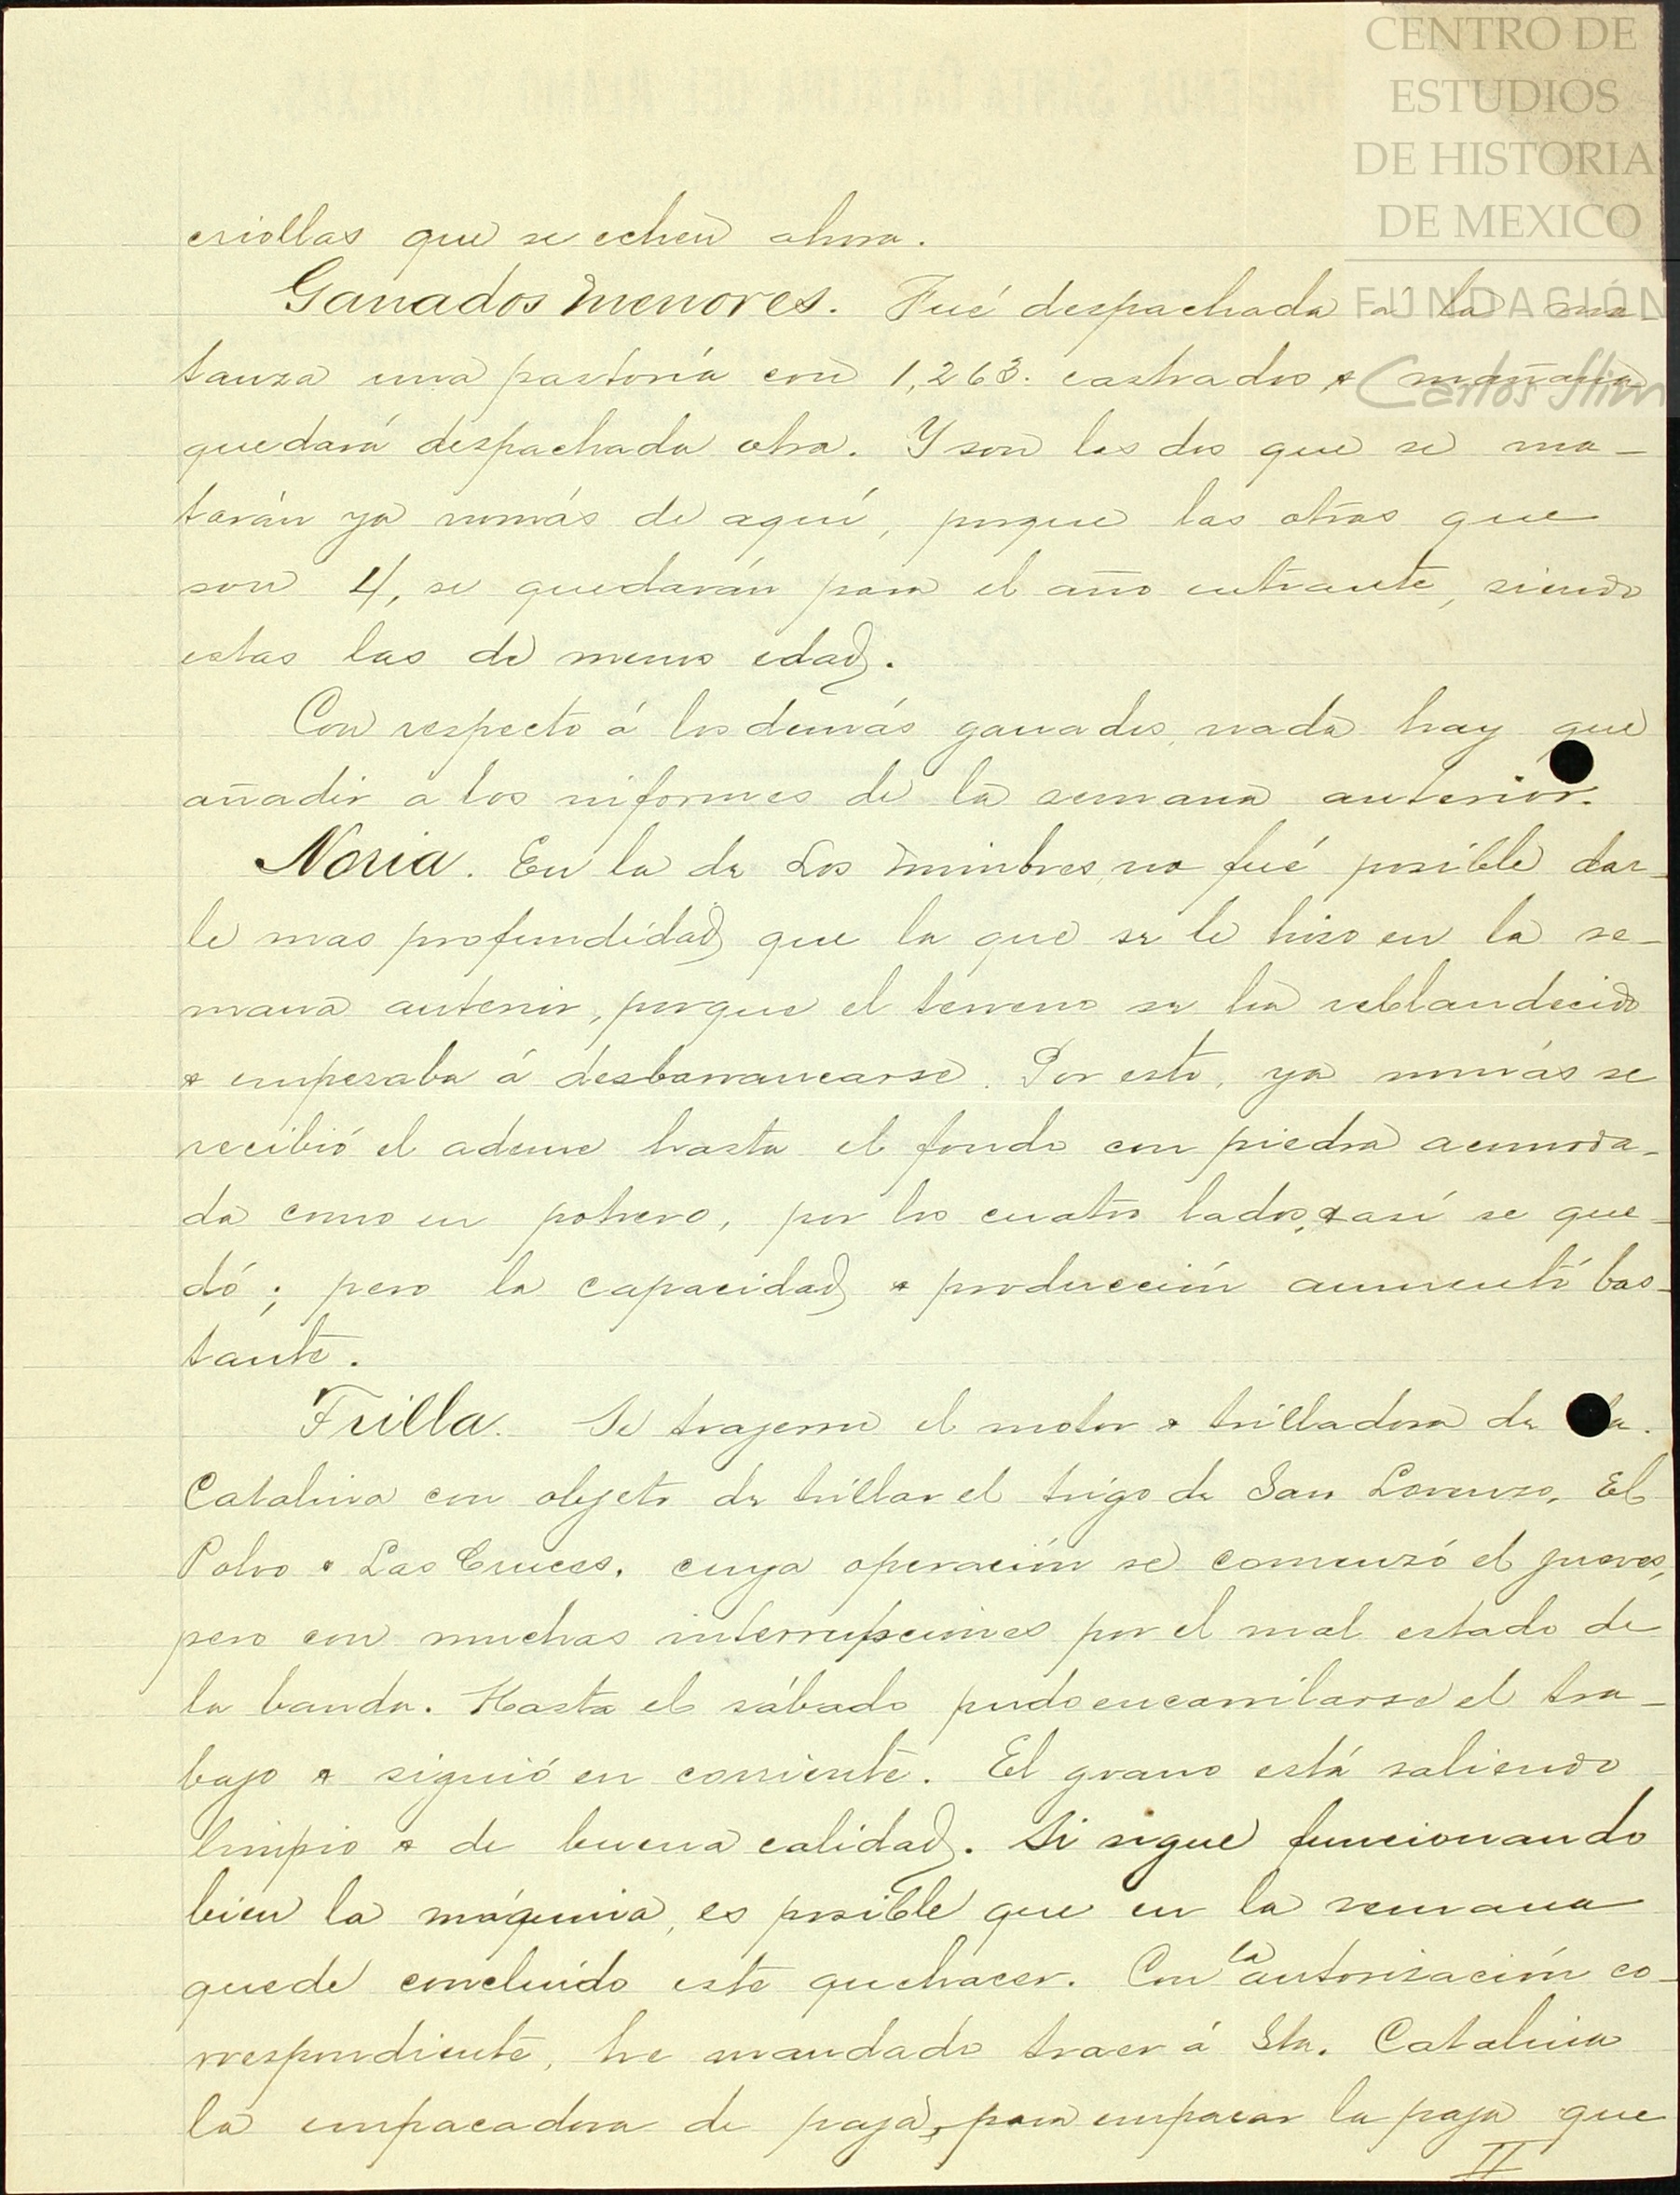 CENTRO DE
ESTUDIOS
DE HISTORIA
DE MEXICO
FUNDACIÓN
Carlos Slim
criollas que se echen ahora.
Ganados menores. Fué despachada á la ma-
tanza una pastoría con 1,263. castrados & mañana
quedará despachada otra. Y son las dos que se ma-
tarán ya nomás de aquí, porque las otras que
son 4, se quedarán para el año entrante, siendo
estas las de menos edad.
Con respecto á los demás ganados, nada hay que
añadir a los informes de la semana anterior.
Noria. En la de Los Mimbres, no fué posible dar-
le mas profundidad que la que se le hizo en la se-
mana anterior, porque el terreno se ha reblandecido
& empezaba á desbarrancarse. Por esto, ya nomás se
recibió el ademe hasta el fondo con piedra acomoda-
da como en potrero, por los cuatro lados, & así se que-
dó; pero la capacidad & producción aumentó bas-
tante.
Trilla. Se trajeron el motor & trilladora de
Catalina con objeto de trillar el trigo de San Lorenzo, El
Polvo & Las Cruces, cuya operación se comenzó el jueves,
pero con muchas interrupciones por el mal estado de
la banda. Hasta el sábado pudo encarrilarse el tra-
bajo & siguió en corriente. El grano está saliendo
limpio & de buena calidad. Si sigue funcionando
bien la máquina, es posible que en la semana
quede concluído este quehacer. Con la autorización co-
rrespondiente, he mandado traer á Sta. Catalina
la empacadora de paja, para empacar la paja que
II